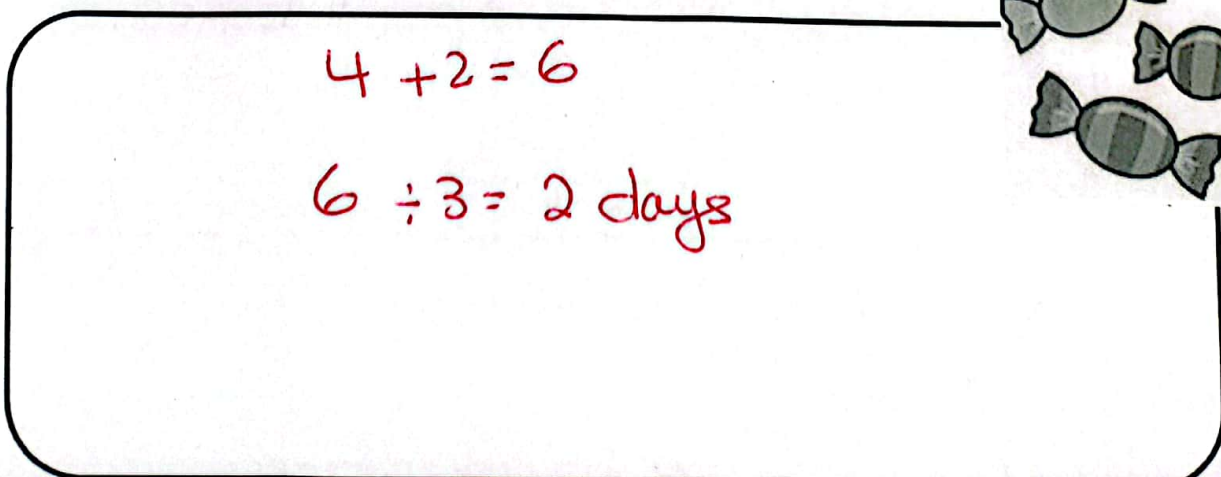 4 + 2 = 6
6 ÷ 3 = 2 days